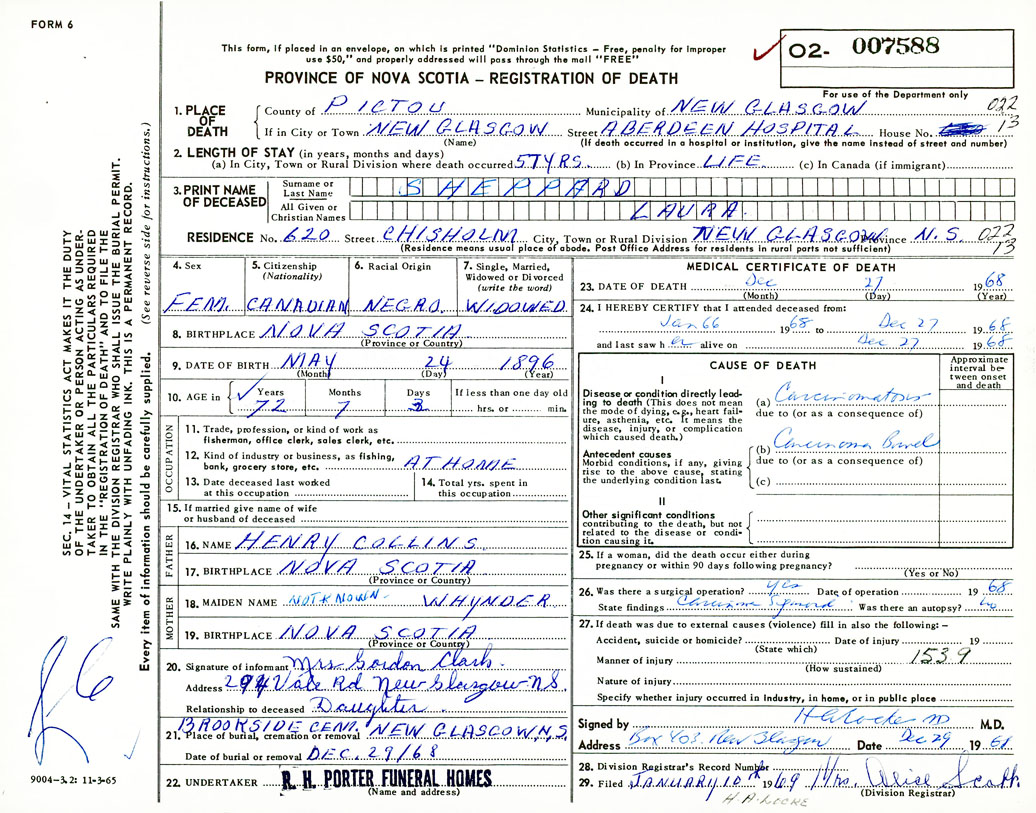 FORM 6
This form, if placed in an envelope, on which is printed "Dominion Statistics – Free, penalty for improper
use $50," and properly addressed will pass through the mail "FREE"
PROVINCE OF NOVA SCOTIA – REGISTRATION OF DEATH
02- 007588
For use of the Department only
SEC. 14 – VITAL STATISTICS ACT MAKES IT THE DUTY
OF THE UNDERTAKER OR PERSON ACTING AS UNDER-
TAKER TO OBTAIN ALL THE PARTICULARS REQUIRED
IN THE "REGISTRATION OF DEATH" AND TO FILE THE
SAME WITH THE DIVISION REGISTRAR WHO SHALL ISSUE THE BURIAL PERMIT.
WRITE PLAINLY WITH UNFADING INK. THIS IS A PERMANENT RECORD.
Every item of information should be carefully supplied. (See reverse side for instructions.)
1. PLACE OF DEATH
County of PICTOU Municipality of NEW GLASGOW 022
If in City or Town NEW GLASGOW Street ABERDEEN HOSPITAL House No. 13
(Name) (If death occurred in a hospital or institution, give the name instead of street and number)
2. LENGTH OF STAY (in years, months and days)
(a) In City, Town or Rural Division where death occurred 57YRS. (b) In Province LIFE (c) In Canada (if immigrant)
3. PRINT NAME OF DECEASED
Surname or Last Name SHEPPARD
All Given or Christian Names LAURA
RESIDENCE No. 620 Street CHISHOLM City, Town or Rural Division NEW GLASGOW Province N.S. 022
(Residence means usual place of abode. Post Office Address for residents in rural ports not sufficient) 13
4. Sex FEM.
5. Citizenship (Nationality) CANADIAN
6. Racial Origin NEGRO
7. Single, Married, Widowed or Divorced (write the word) WIDOWED
8. BIRTHPLACE NOVA SCOTIA
(Province or Country)
9. DATE OF BIRTH MAY 24 1896
(Month) (Day) (Year)
10. AGE in Years 72 Months 7 Days 3 If less than one day old hrs. or min.
OCCUPATION
11. Trade, profession, or kind of work as
fisherman, office clerk, sales clerk, etc.
12. Kind of industry or business, as fishing,
bank, grocery store, etc. AT HOME
13. Date deceased last worked
at this occupation
14. Total yrs. spent in
this occupation
15. If married give name of wife
or husband of deceased
FATHER
16. NAME HENRY COLLINS
17. BIRTHPLACE NOVA SCOTIA
(Province or Country)
MOTHER
18. MAIDEN NAME NOT KNOWN WHYNDER
19. BIRTHPLACE NOVA SCOTIA
(Province or Country)
20. Signature of informant Mrs Gordon Clark
Address 294 Vale Rd New Glasgow NS.
Relationship to deceased Daughter
BROOKSIDE CEM. NEW GLASGOW, N.S.
21. Place of burial, cremation or removal
Date of burial or removal DEC. 29/68
22. UNDERTAKER R. H. PORTER FUNERAL HOMES
(Name and address)
9004-3.2: 11-3-65
MEDICAL CERTIFICATE OF DEATH
23. DATE OF DEATH Dec 27 1968
(Month) (Day) (Year)
24. I HEREBY CERTIFY that I attended deceased from:
Jan 66 1968 to Dec 27 1968
and last saw her alive on Dec 27 1968
CAUSE OF DEATH
Approximate interval between onset and death
I
Disease or condition directly lead-
ing to death (This does not mean
the mode of dying, e.g., heart fail-
ure, asthenia, etc. It means the
disease, injury, or complication
which caused death.)
(a) Carcinomatosis
due to (or as a consequence of)
Antecedent causes
Morbid conditions, if any, giving
rise to the above cause, stating
the underlying condition last.
(b) Carcinoma Bowel
due to (or as a consequence of)
(c)
II
Other significant conditions
contributing to the death, but not
related to the disease or condi-
tion causing it.
25. If a woman, did the death occur either during
pregnancy or within 90 days following pregnancy?
(Yes or No)
26. Was there a surgical operation? yes Date of operation 19 68
State findings Carcinoma Sigmoid Was there an autopsy? no
27. If death was due to external causes (violence) fill in also the following:–
Accident, suicide or homicide? Date of injury 19
(State which)
Manner of injury 1539
(How sustained)
Nature of injury
Specify whether injury occurred in Industry, in home, or in public place
Signed by H A Locke MD M.D.
Address Box 403 New Glasgow Date Dec 29 1968
28. Division Registrar's Record Number
29. Filed JANUARY 10th 1969 Mrs. Alice Scott
(Division Registrar)
H-A-LOCKE